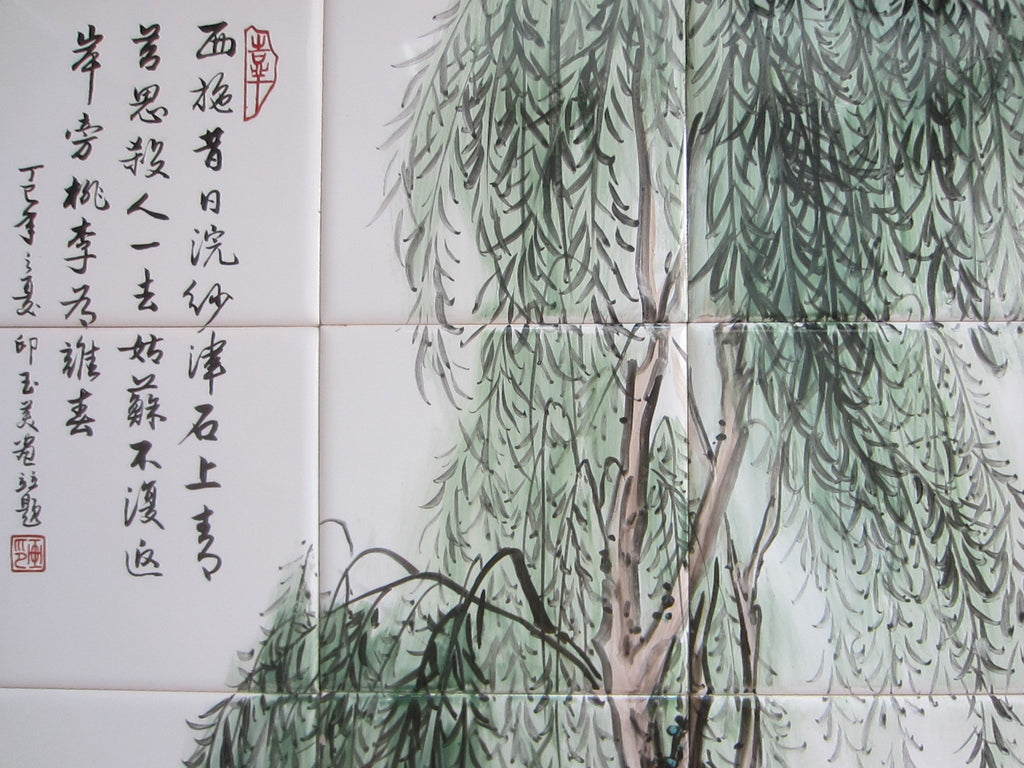 西施昔日浣紗津石上青
苔思殺人一去姑蘇不復返
岸旁桃李為誰春
丁巳年之夏印玉美畫並題